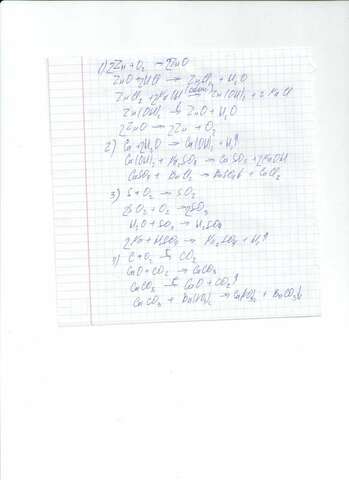 1) 2Zn + O2 → 2ZnO
ZnO + 2HCl → ZnCl2 + H2O
ZnCl2 + 2NaOH → Zn(OH)2 + 2NaCl
Zn(OH)2 → ZnO + H2O
2ZnO → 2Zn + O2
2) Ca + 2H2O → Ca(OH)2 + H2↑
Ca(OH)2 + Na2SO4 → CaSO4 + 2NaOH
CaSO4 + BaCl2 → BaSO4↓ + CaCl2
3) S + O2 → SO2
2SO2 + O2 → 2SO3
H2O + SO3 → H2SO4
2Na + H2SO4 → Na2SO4 + H2↑
4) C + O2 → CO2
CaO + CO2 → CaCO3
CaCO3 → CaO + CO2↑
CaCO3 + → + BaCO3↓